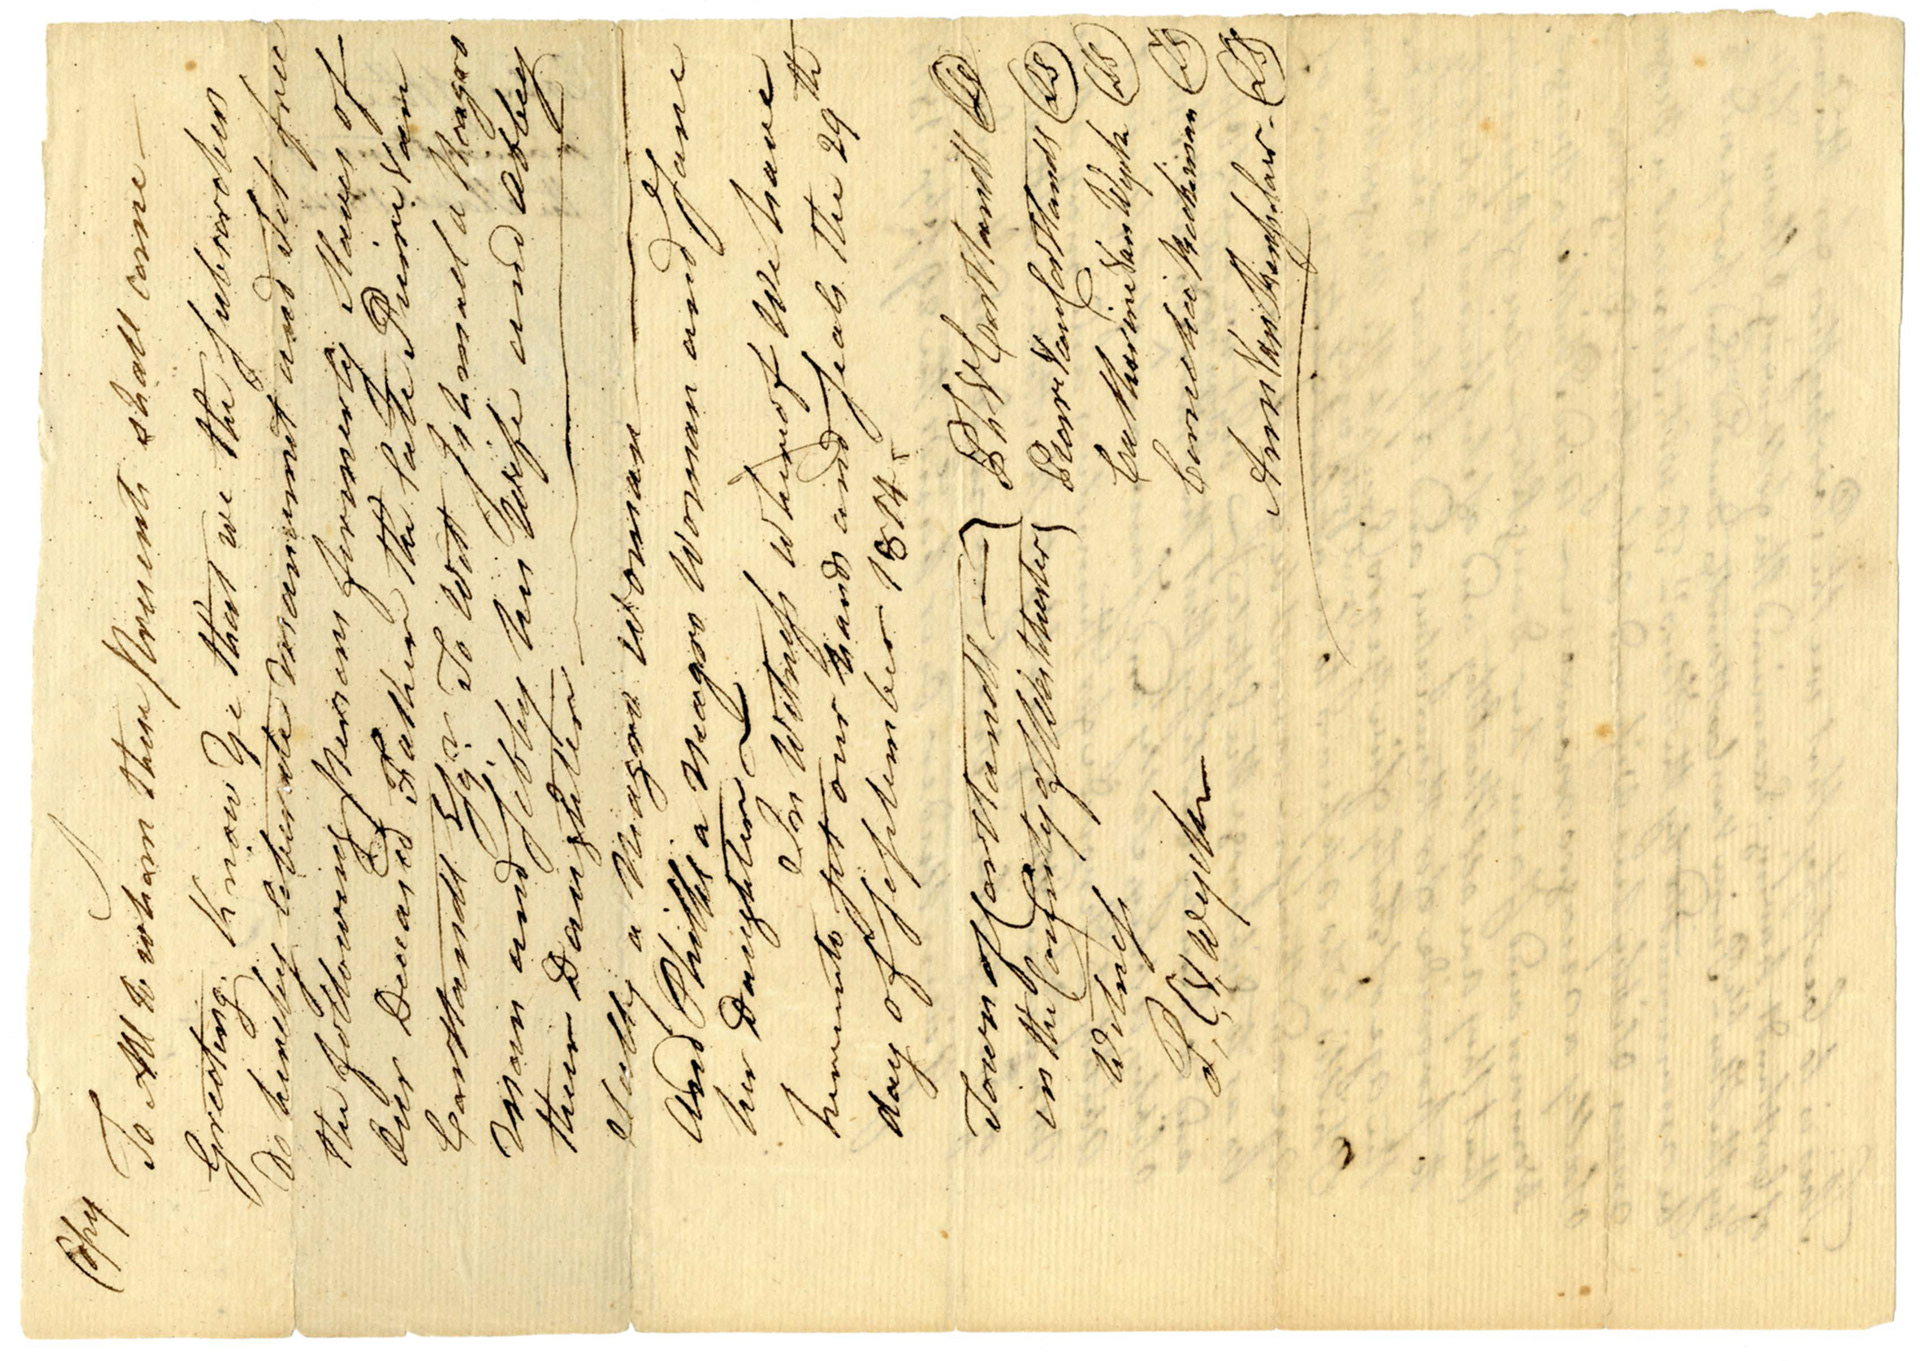 Copy
To All to whom these presents shall come —
Greeting. Know Ye that we the subscribers
do hereby liberate manumit and set free
the following persons formerly slaves of
Our Deceased Father the late Pierre Van
Cortlandt Esqr. To Wit Ishmael a Negro
Man and Sibby his Wife and Abbey
their Daughter
a Negro Woman
And Phillis a Negro Woman and Jane
her Daughter
In Witness whereof We have
hereunto put our hands and seals the 29th
day of September 1814.
Town of Cortlandt — } Ph V Cortlandt LS
in the County of Westchester } Pierre Van Cortlandt LS
Witness Catharine Van Wyck LS
Cornelia Beekman LS
P. C. V. Wyck Ann Van Rensselaer LS